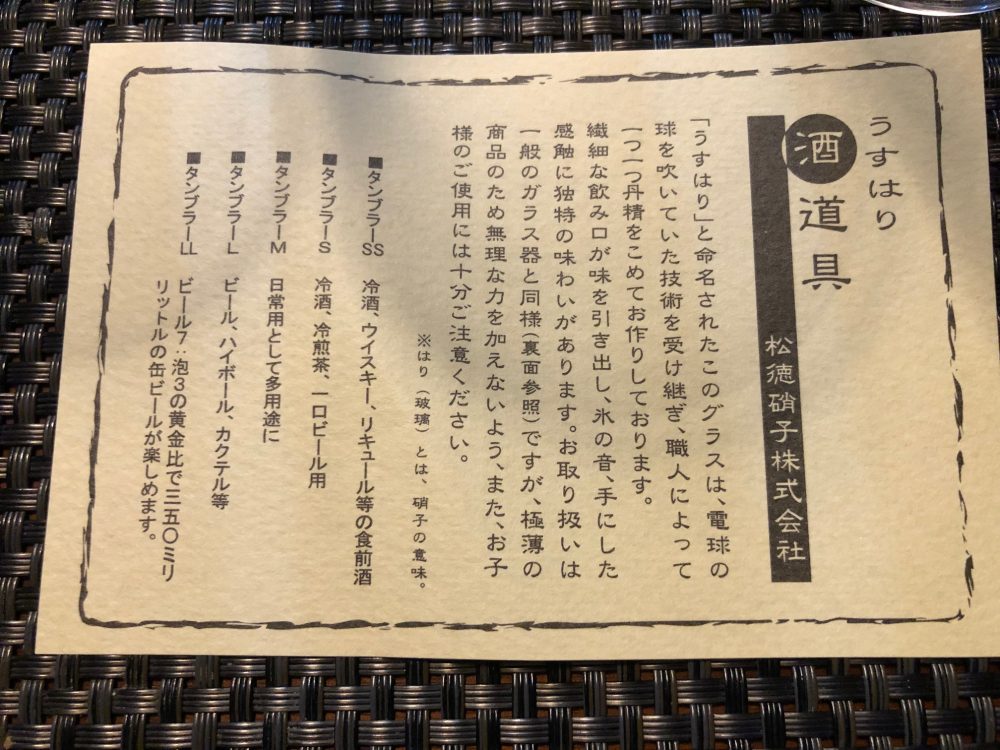 うすはり
酒道具
松徳硝子株式会社
「うすはり」と命名されたこのグラスは、電球の
球を吹いていた技術を受け継ぎ、職人によって
一つ一つ丹精をこめてお作りしております。
繊細な飲み口が味を引き出し、氷の音、手にした
感触に独特の味わいがあります。お取り扱いは
一般のガラス器と同様(裏面参照)ですが、極薄の
商品のため無理な力を加えないよう、また、お子
様のご使用には十分ご注意ください。
※はり（玻璃）とは、硝子の意味。
■タンブラーSS 冷酒、ウイスキー、リキュール等の食前酒
■タンブラーS 冷酒、冷煎茶、一口ビール用
■タンブラーM 日常用として多用途に
■タンブラーL ビール、ハイボール、カクテル等
■タンブラーLL ビール7:泡3の黄金比で三五〇ミリ
リットルの缶ビールが楽しめます。